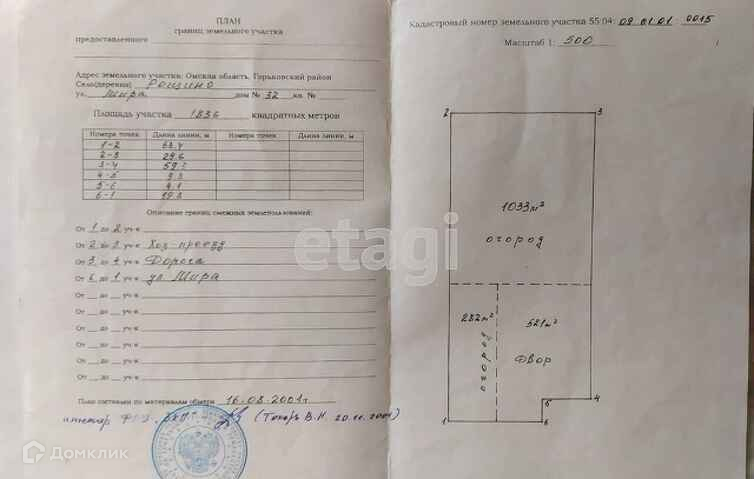 ПЛАН
границ земельного участка
предоставленного
Адрес земельного участка: Омская область, Горьковский район
Село(деревня) Рощино
ул. Мира дом № 32 кв. №
Площадь участка 1836 квадратных метров
Номера точек Длина линии, м Номера точек Длина линии, м
1-2 63.4
2-3 29.6
3-4 59.2
4-5 9.3
5-6 4.1
6-1 19.3
Описание границ смежных землепользований:
От 1 до 2 уч-к
От 2 до 3 уч-к Хоз-проезд
От 3 до 4 уч-к Дорога
От 6 до 1 уч-к ул. Мира
От до уч-к
От до уч-к
От до уч-к
От до уч-к
От до уч-к
От до уч-к
План составлен по материалам обмера 16.08.2001г
инженер (Токарь В.И. 20.10.2001)
Кадастровый номер земельного участка 55:04: 02 01 01 : 0015
Масштаб 1: 500
2 3
1033м²
огород
282м² 521м²
огород
Двор
5 4
1 6
etagi
Домклик